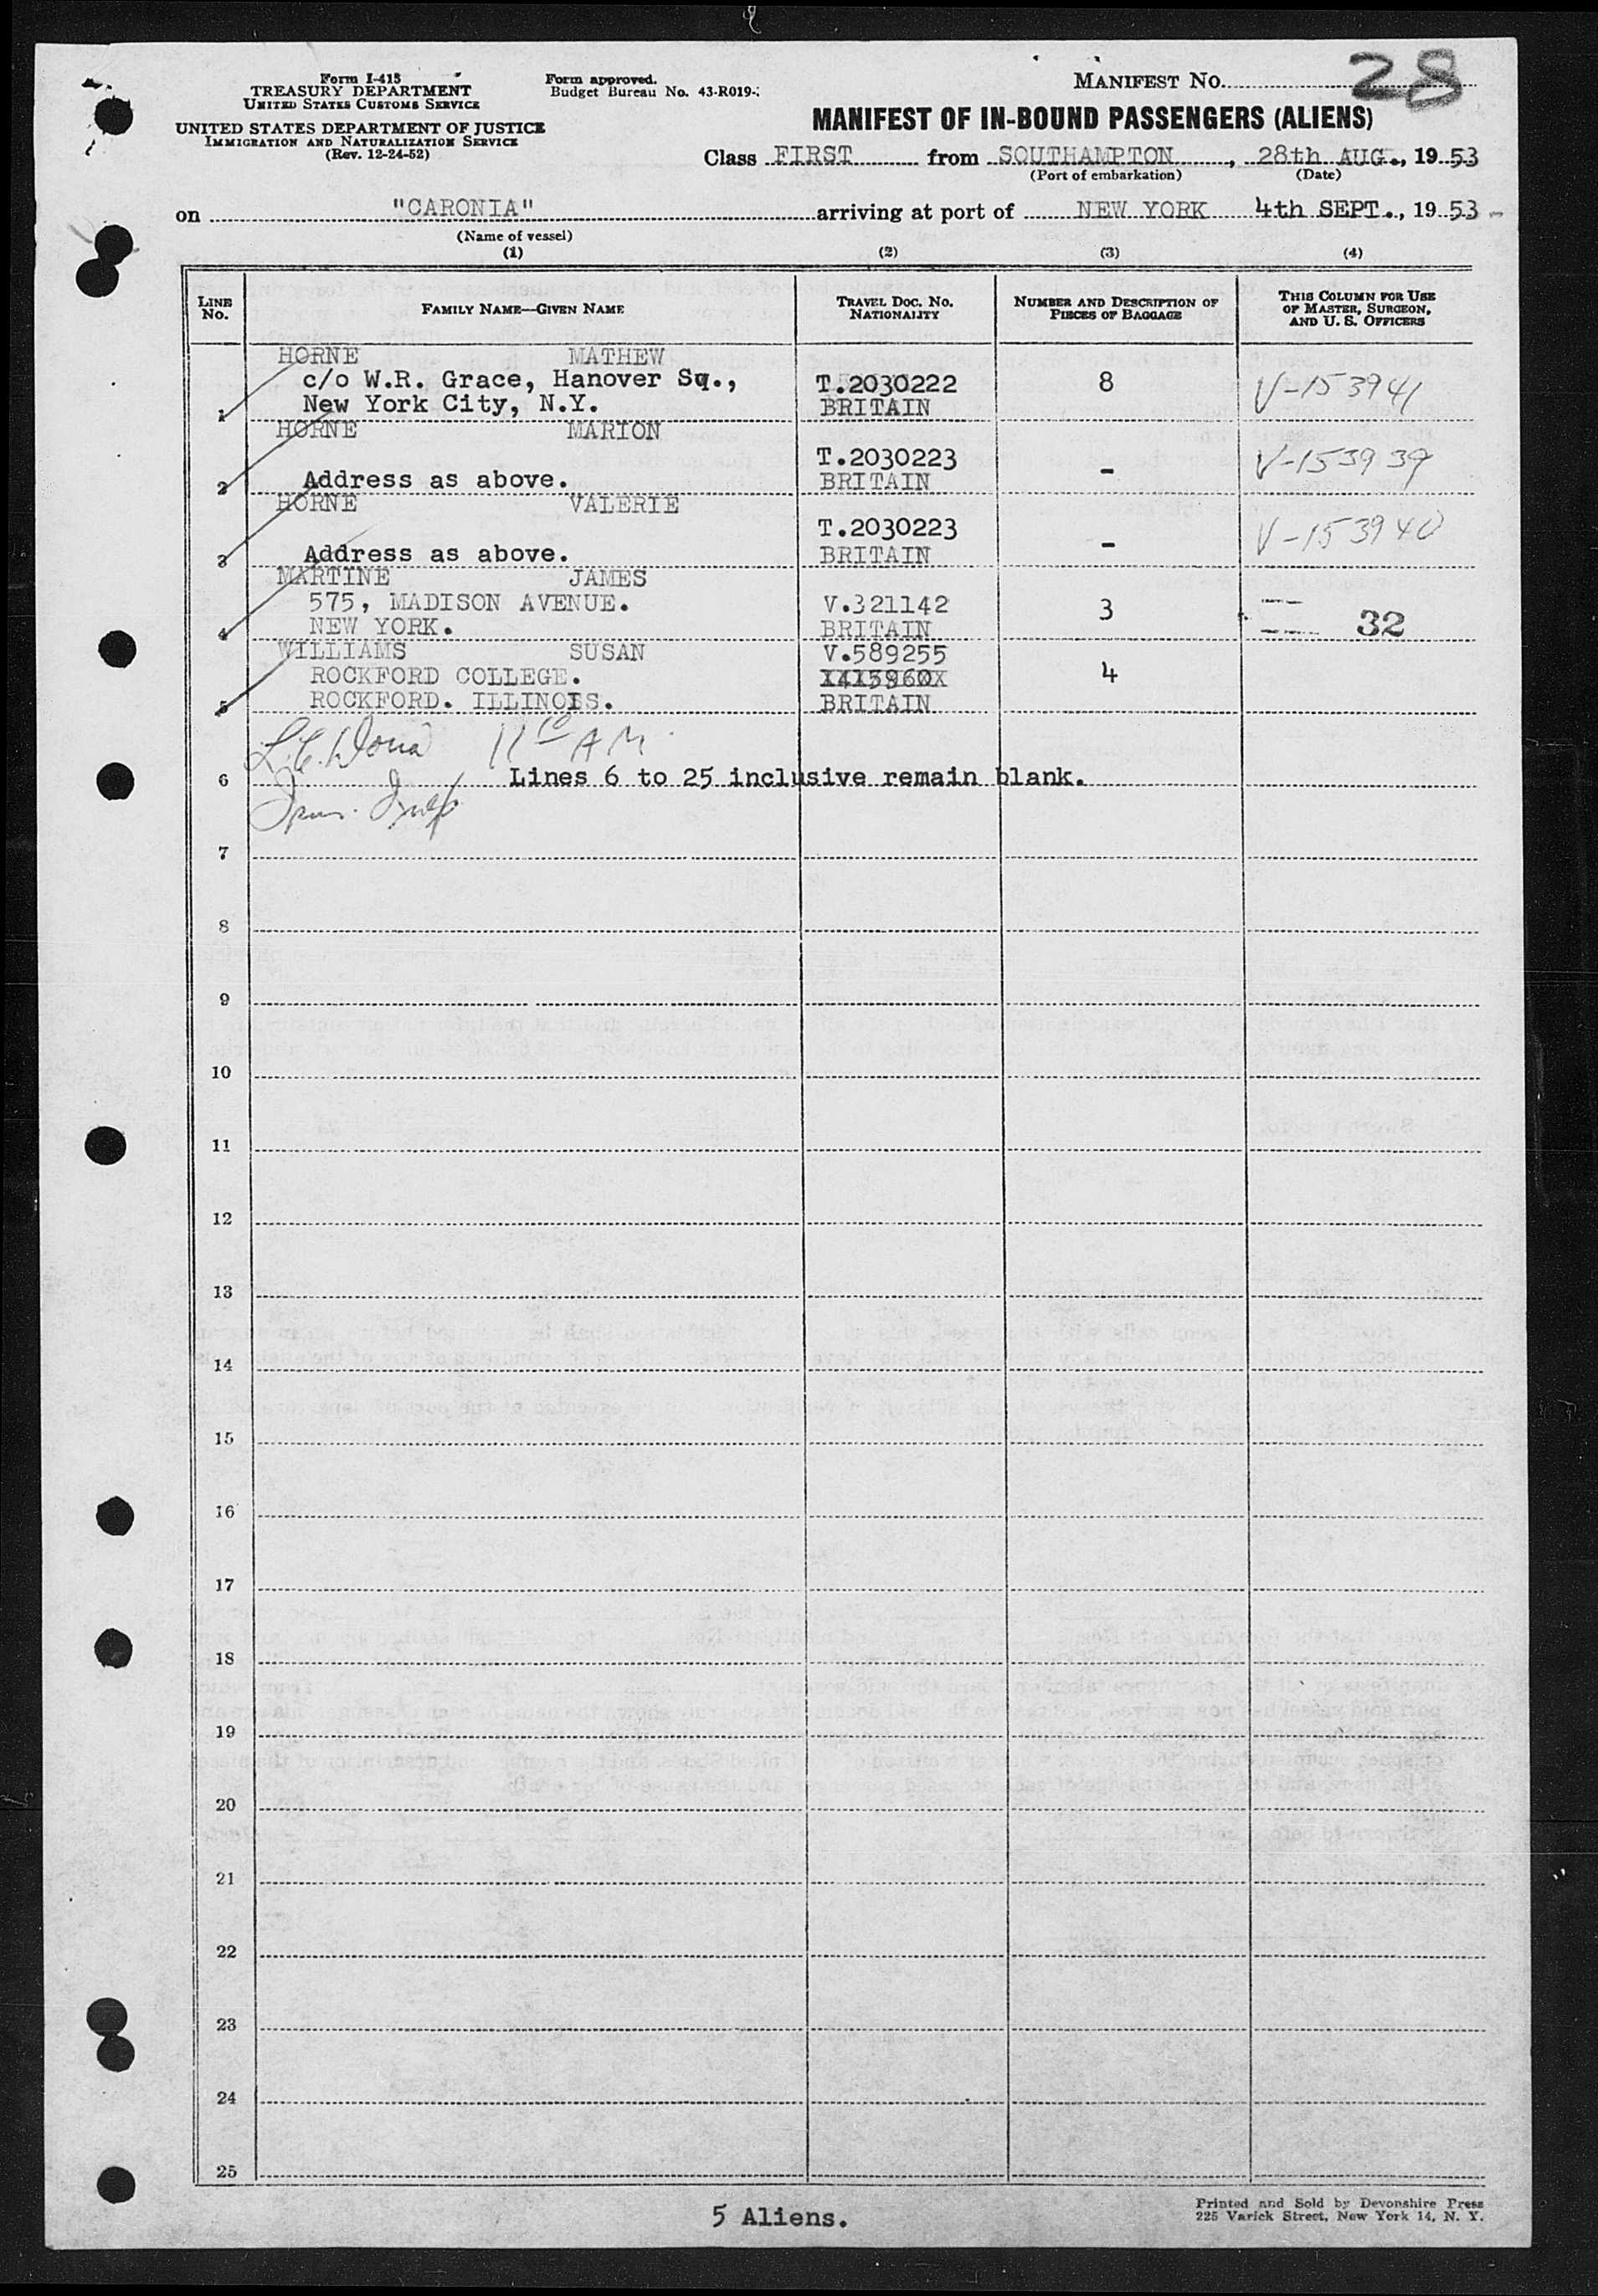 Form I-415
TREASURY DEPARTMENT
UNITED STATES CUSTOMS SERVICE
UNITED STATES DEPARTMENT OF JUSTICE
IMMIGRATION AND NATURALIZATION SERVICE
(Rev. 12-24-52)
Form approved.
Budget Bureau No. 43-R019-
MANIFEST NO. 28
MANIFEST OF IN-BOUND PASSENGERS (ALIENS)
Class FIRST from SOUTHAMPTON, 28th AUG., 19 53
(Port of embarkation) (Date)
on "CARONIA" arriving at port of NEW YORK 4th SEPT., 19 53
(Name of vessel)
(1) (2) (3) (4)
LINE NO. FAMILY NAME—GIVEN NAME TRAVEL DOC. NO. NATIONALITY NUMBER AND DESCRIPTION OF PIECES OF BAGGAGE THIS COLUMN FOR USE OF MASTER, SURGEON, AND U. S. OFFICERS
HORNE MATHEW
c/o W.R. Grace, Hanover Sq., T.2030222 8 V-153941
1 New York City, N.Y. BRITAIN
HORNE MARION
T.2030223 - V-153939
2 Address as above. BRITAIN
HORNE VALERIE
T.2030223 - V-153940
3 Address as above. BRITAIN
MARTINE JAMES
575, MADISON AVENUE. V.321142 3
4 NEW YORK. BRITAIN 32
WILLIAMS SUSAN V.589255
ROCKFORD COLLEGE. 4
5 ROCKFORD. ILLINOIS. BRITAIN
11 10 AM
6 Lines 6 to 25 inclusive remain blank.
7
8
9
10
11
12
13
14
15
16
17
18
19
20
21
22
23
24
25
5 Aliens.
Printed and Sold by Devonshire Press
225 Varick Street, New York 14, N. Y.